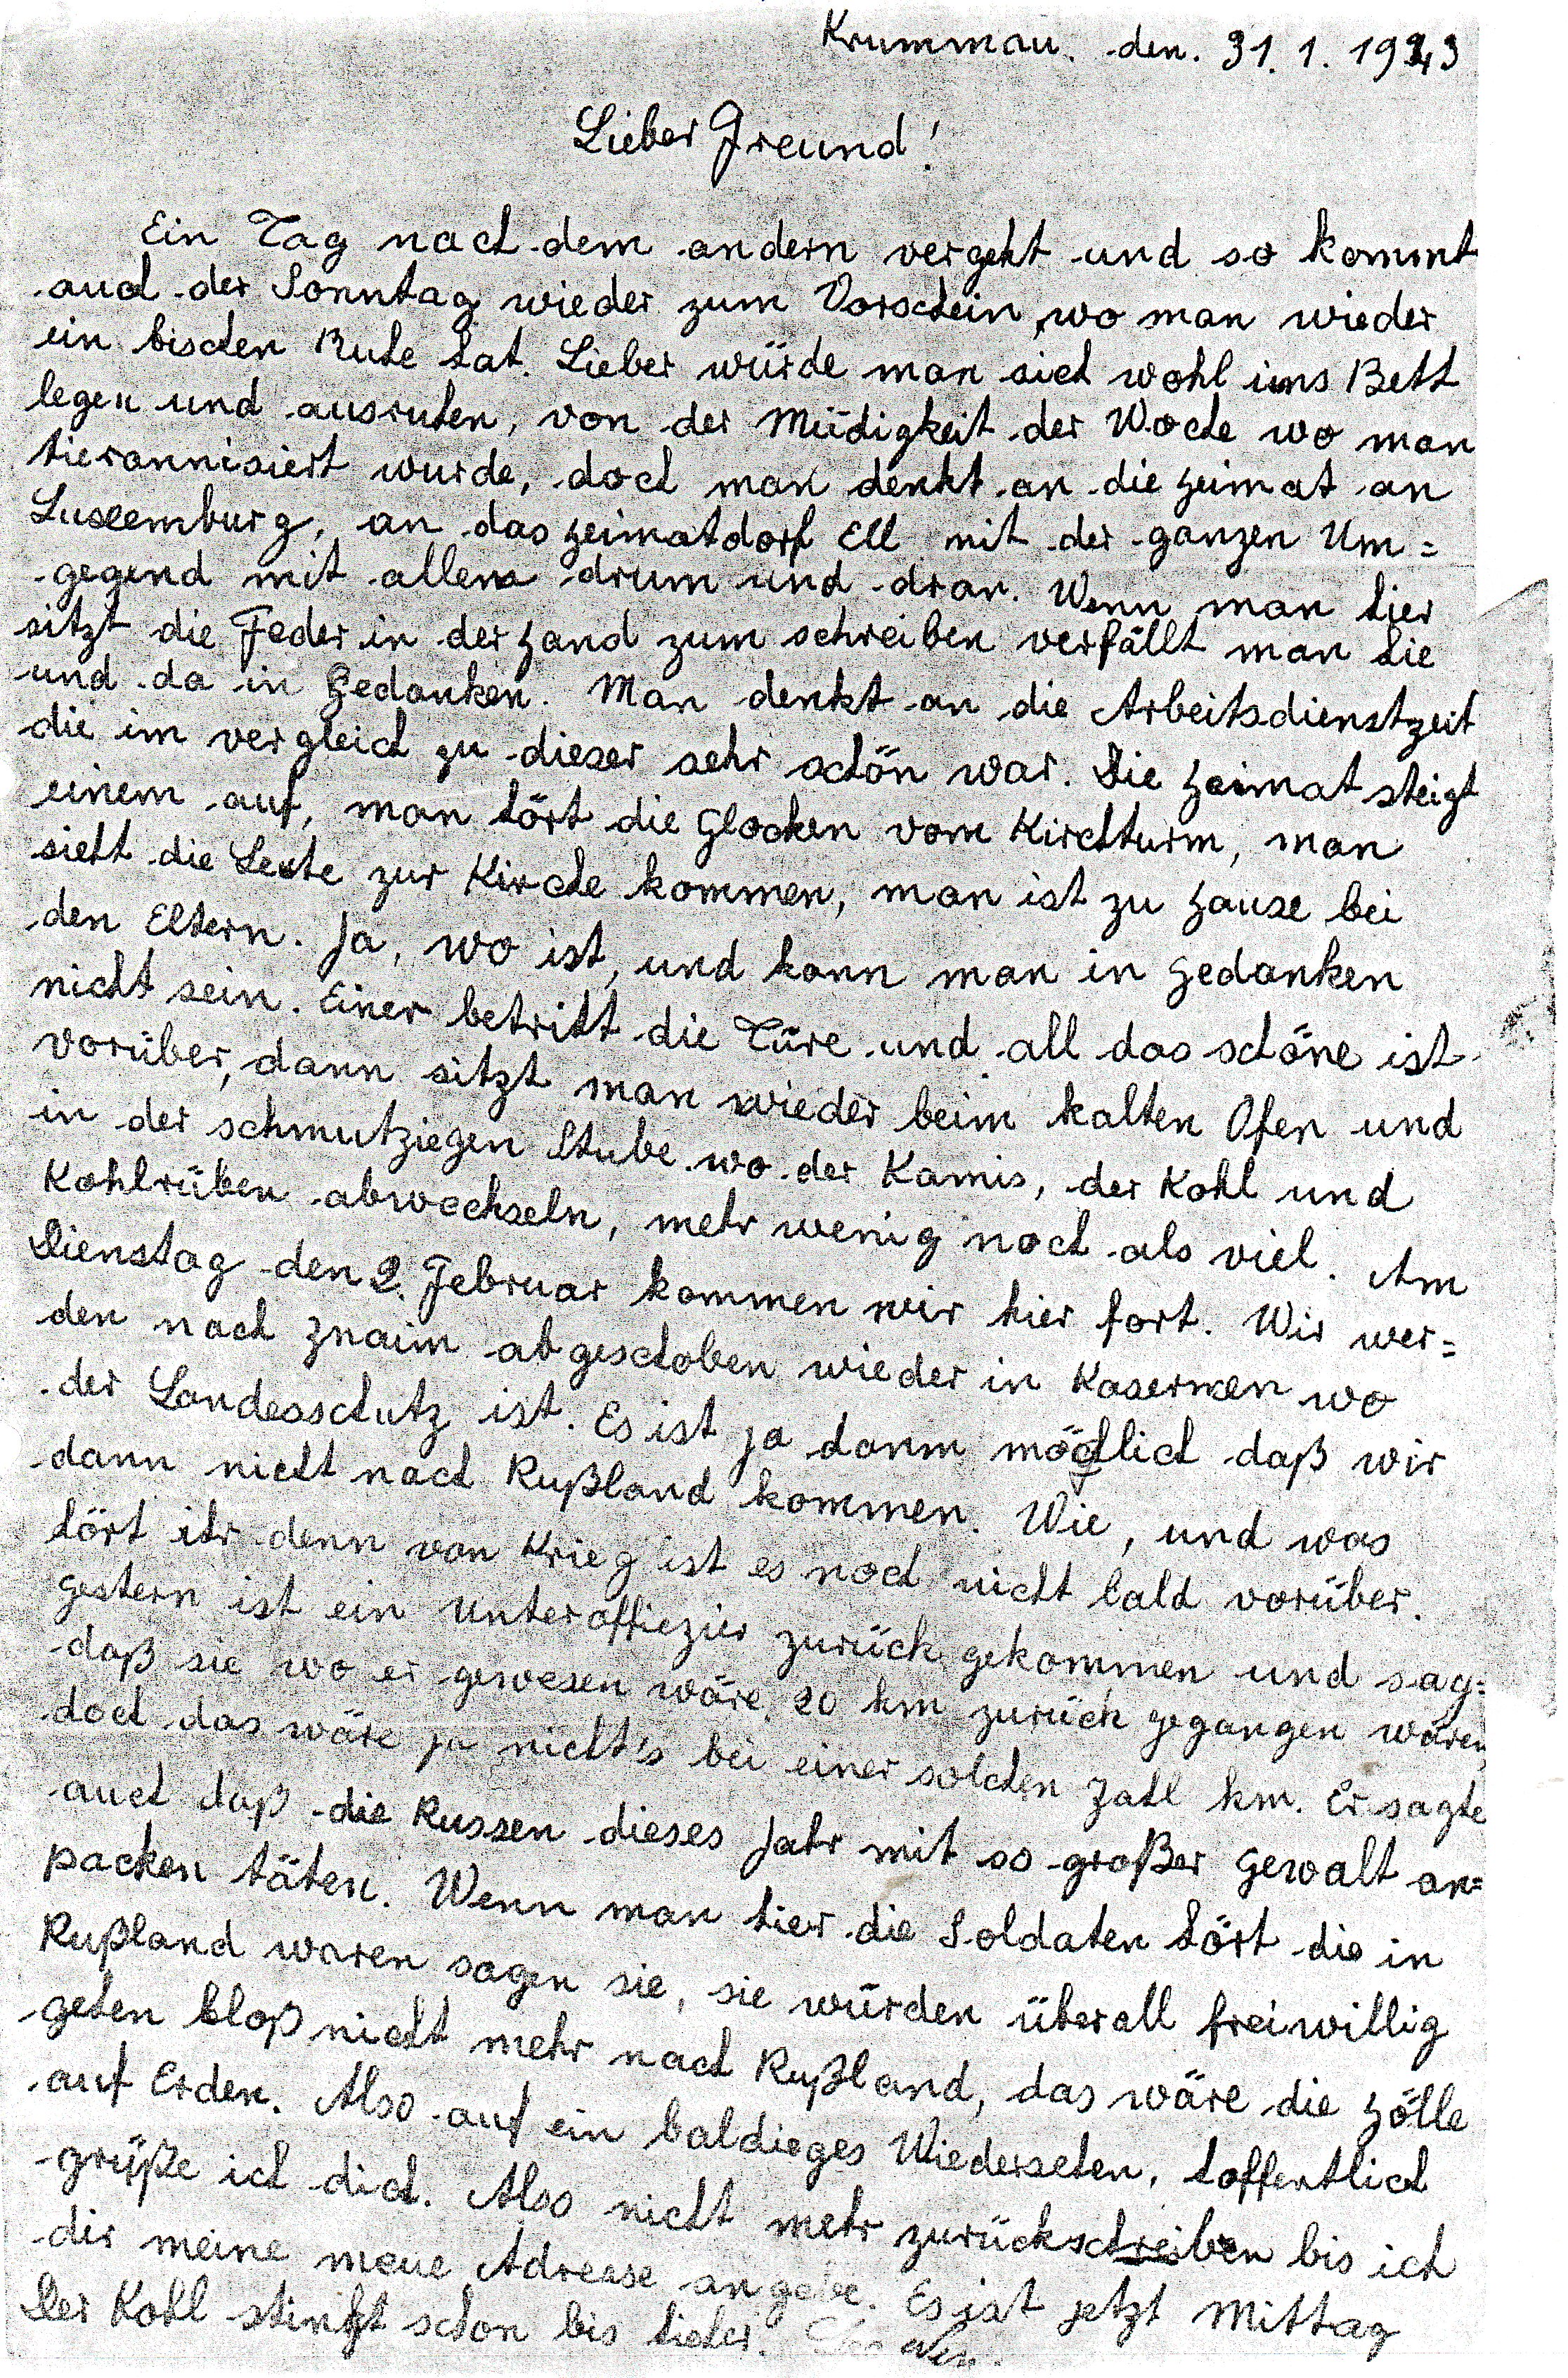 Krummau. den. 31. 1. 1943
Lieber Freund!
Ein Tag nach dem andern vergeht und so kommt
auch der Sonntag wieder zum Vorschein, wo man wieder
ein bischen Ruhe hat. Lieber würde man sich wohl ins Bett
legen und ausruhen, von der Müdigkeit der Woche wo man
tierannisiert wurde, doch man denkt an die Heimat an
Luxemburg, an das Heimatdorf Ell mit der ganzen Um=
gegend mit allem drum und dran. Wenn man hier
sitzt die Feder in der Hand zum schreiben verfällt man hie
und da in Gedanken. Man denkt an die Arbeitsdienstzeit
die im vergleich zu dieser sehr schön war. Die Heimat steigt
einem auf, man hört die Glocken vom Kirchturm, man
sieht die Leute zur Kirche kommen, man ist zu Hause bei
den Eltern. Ja, wo ist, und kann man in Gedanken
nicht sein. Einer betritt die Türe und all das schöne ist
vorüber, dann sitzt man wieder beim kalten Ofen und
in der schmutziegen Stube wo der Kamis, der Kohl und
Kohlrüben abwechseln, mehr wenig noch als viel. Am
Dienstag den 2. Februar kommen wir hier fort. Wir wer=
den nach Znaim abgeschoben wieder in Kasernen wo
der Landesschutz ist. Es ist ja dann möglich daß wir
dann nicht nach Rußland kommen. Wie, und was
hört ihr denn von Krieg ist es noch nicht bald vorüber.
Gestern ist ein Unteroffiezier zurück gekommen und sag=
daß sie wo er gewesen wäre, 20 km zurück gegangen wären
doch das wäre ja nicht's bei einer solchen Zahl km. Er sagte
auch daß die Russen dieses Jahr mit so großer Gewalt an=
packen täten. Wenn man hier die Soldaten hört die in
Rußland waren sagen sie, sie würden überall freiwillig
gehen bloß nicht mehr nach Rußland, das wäre die Hölle
auf Erden. Also auf ein baldieges Wiedersehen, hoffentlich
grüße ich dich. Also nicht mehr zurückschreiben bis ich
dir meine neue Adresse angebe. Es ist jetzt Mittag
Der Kohl stinkt schon bis hieher.